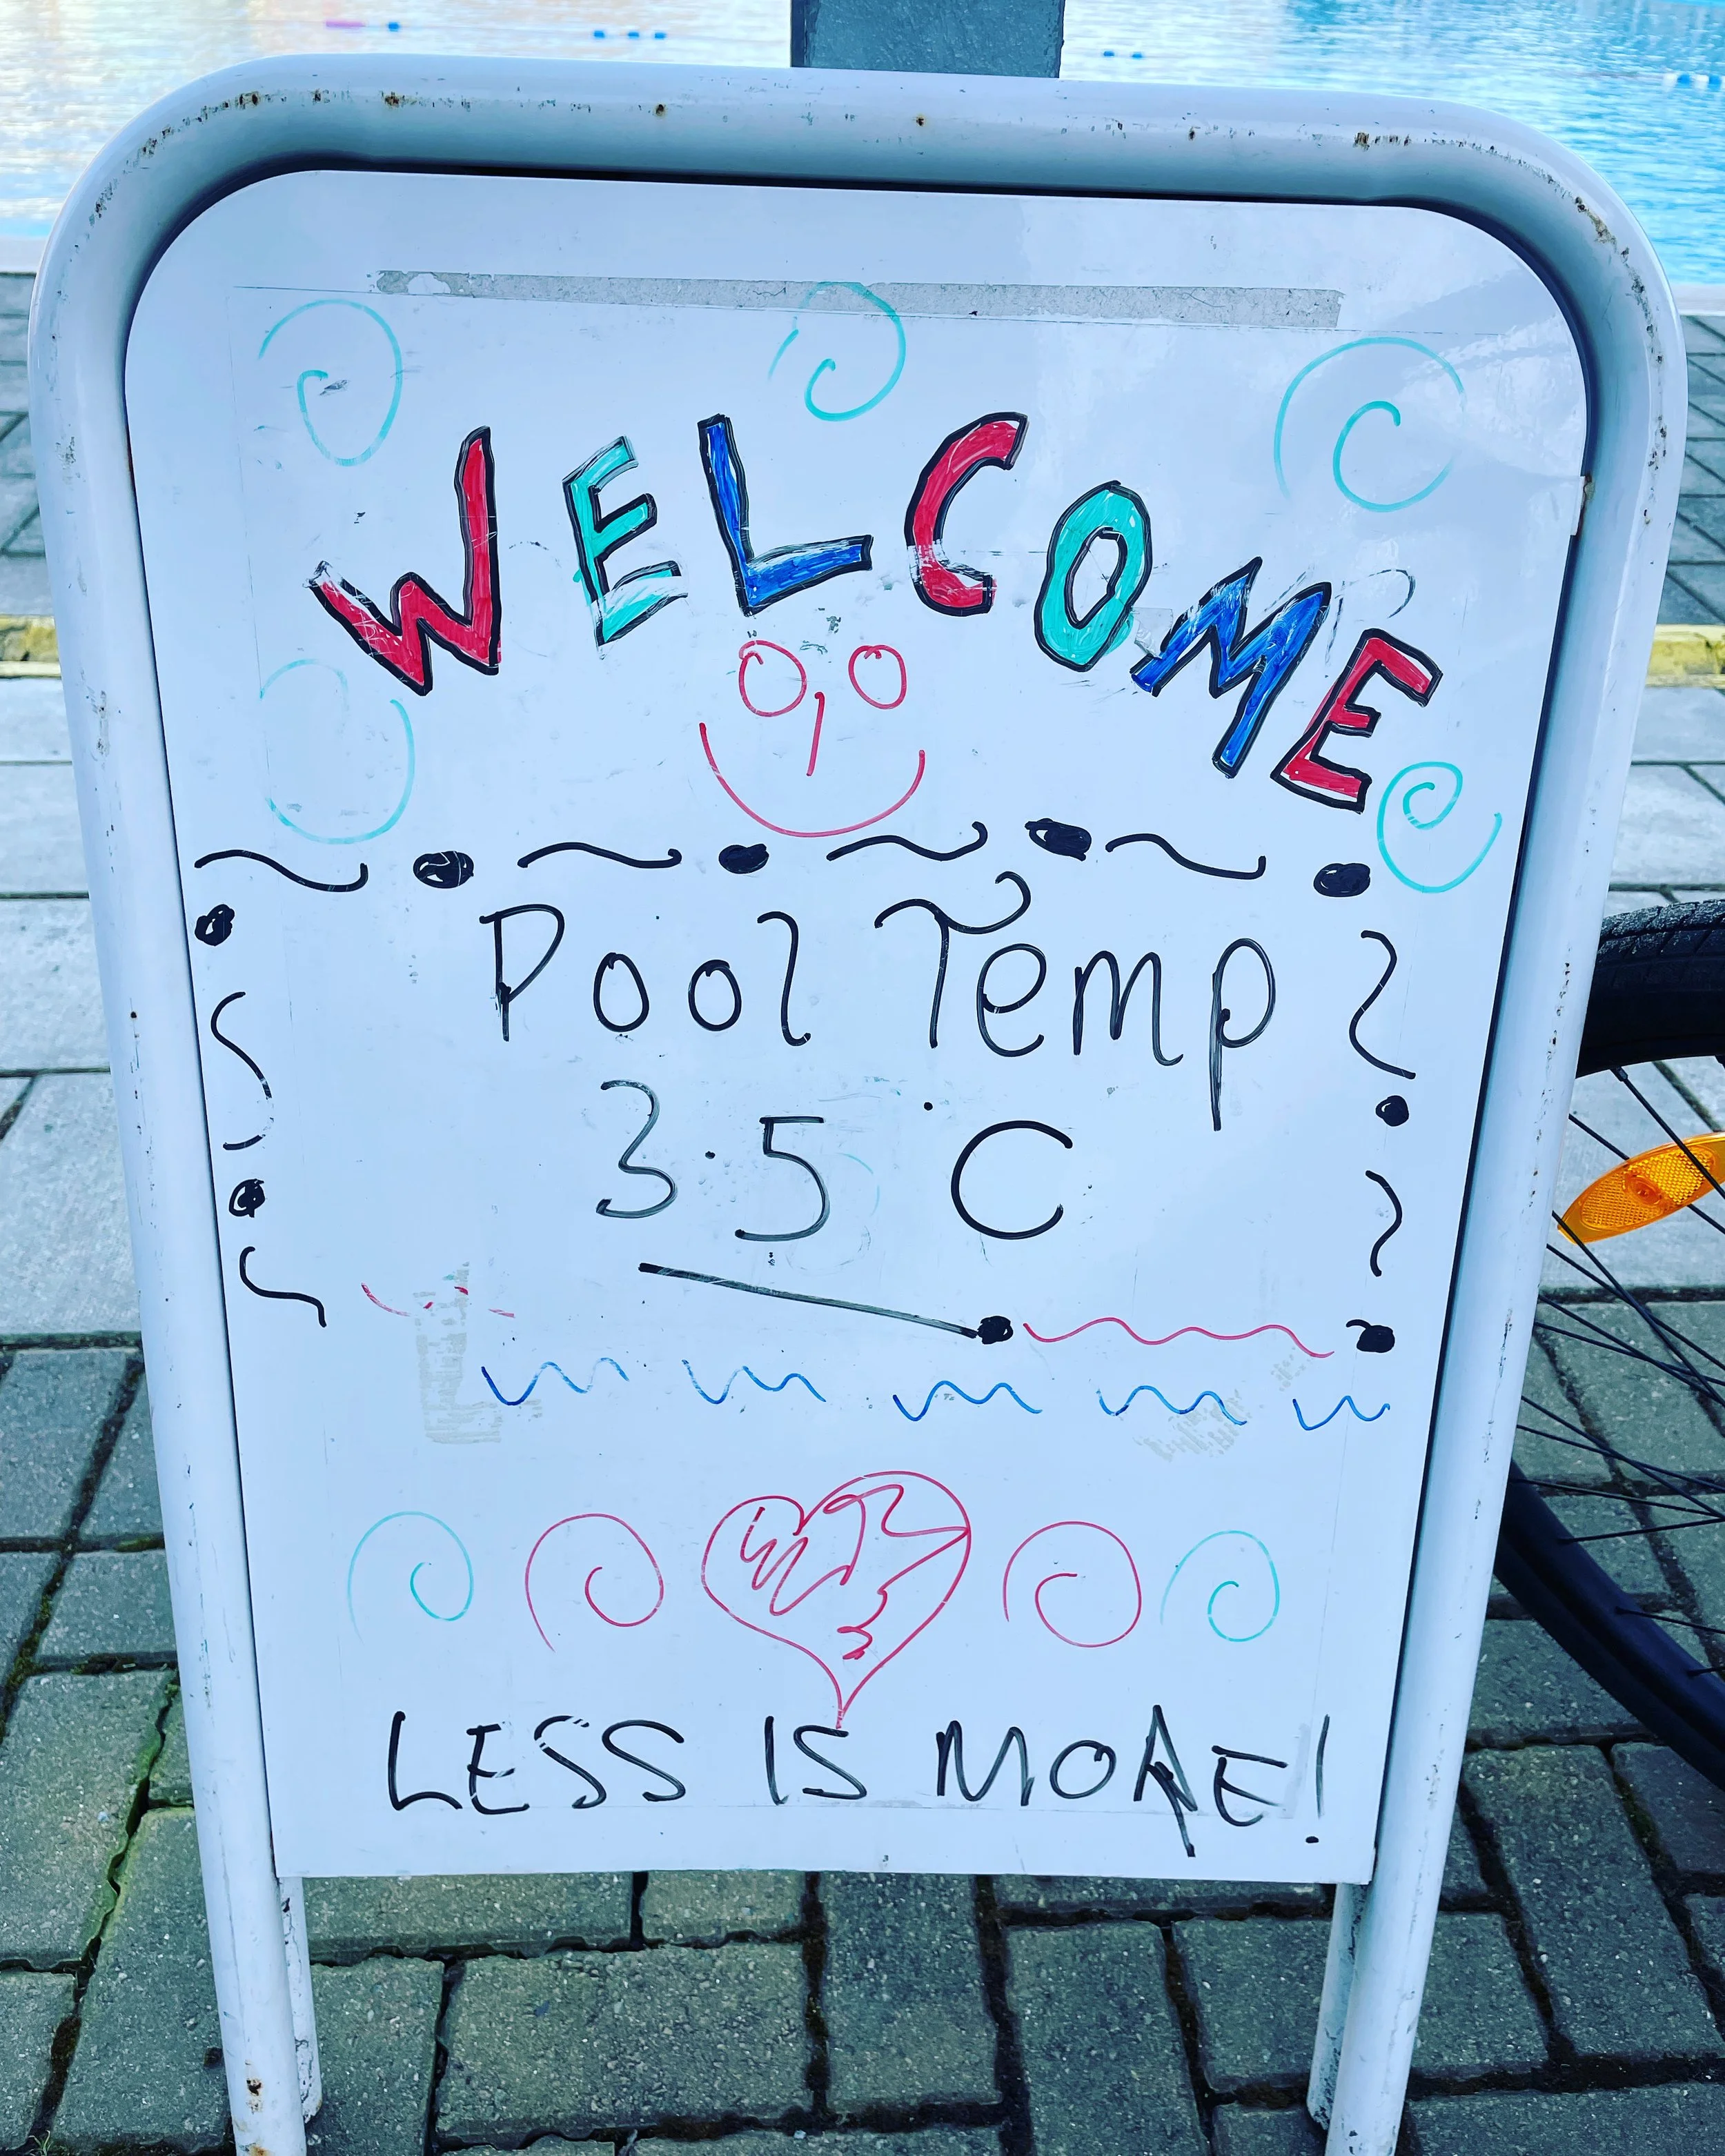 WELCOME
Pool Temp
3.5°C
LESS IS MORE!